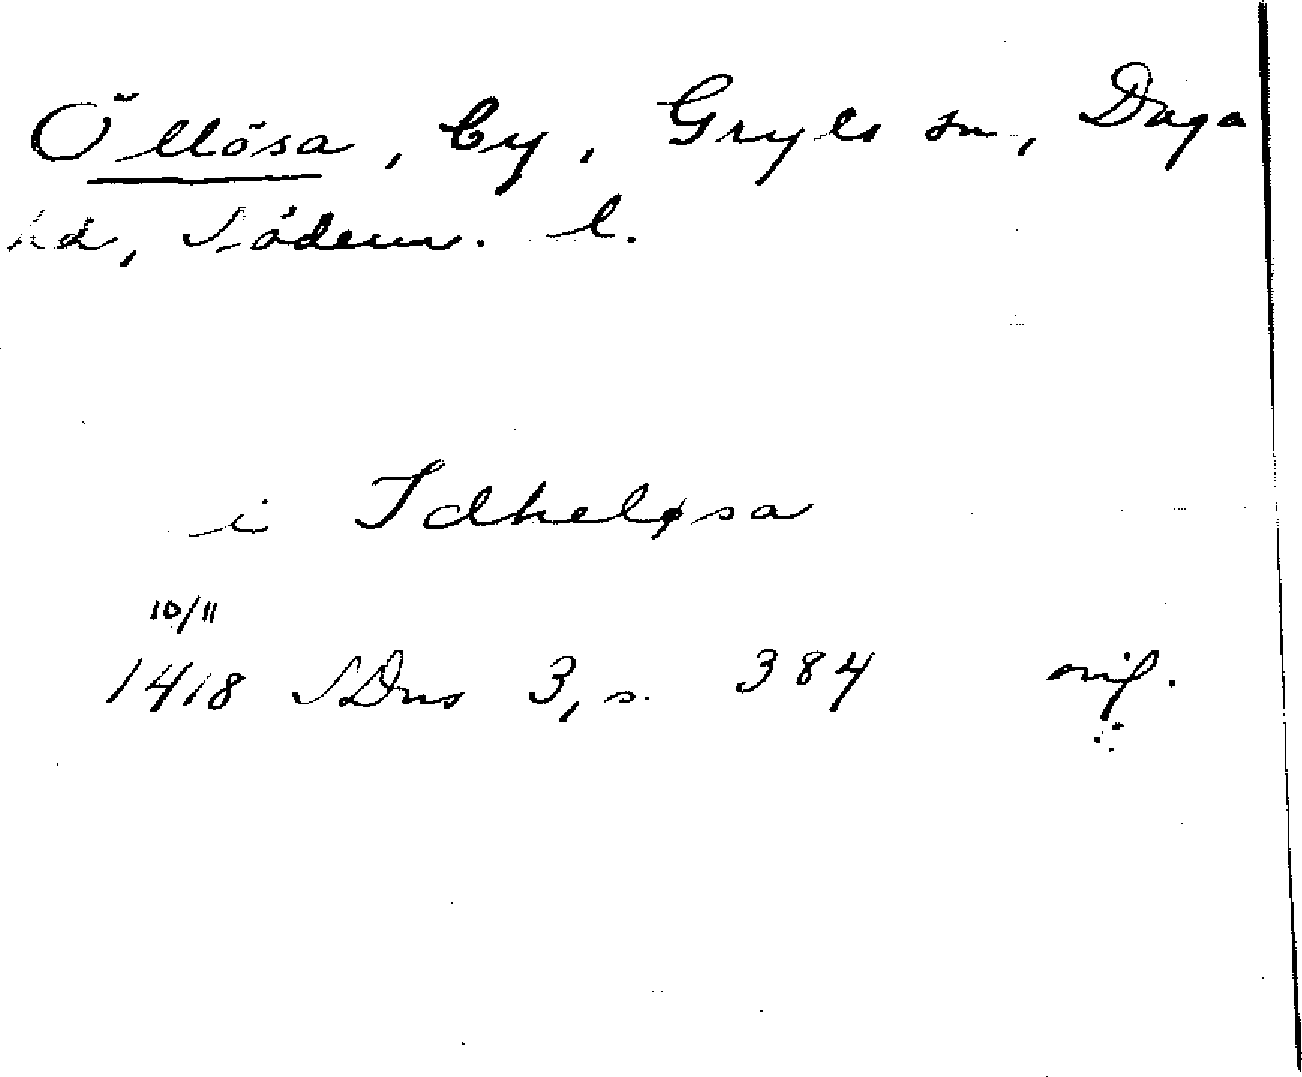 Öllösa, by, Gryts sn, Daga
hd, Söderm. l.
i Idheløsa
10/11
1418 SDns 3, s. 384 orig.